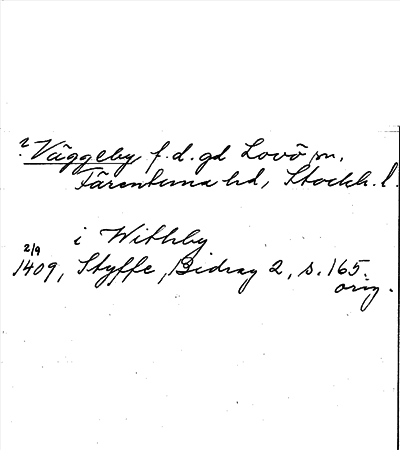 ? Väggeby f.d. gd Lovö sn,
Färentuna hd, Stockh. l.
i Withby
2/9
1409, Styffe, Bidrag 2, s. 165.
orig.